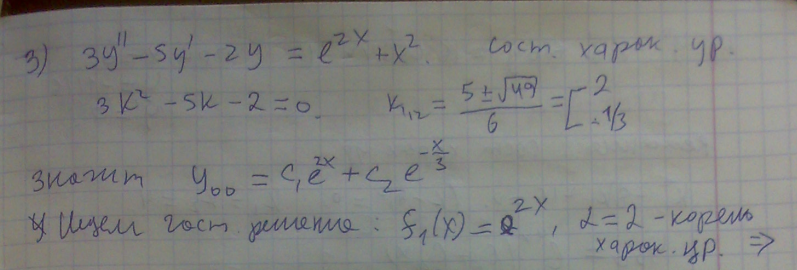 3) 3y'' - 5y' - 2y = e^{2x} + x^2. сост. харак. ур.
3k^2 - 5k - 2 = 0. k_{1,2} = \frac{5 ± \sqrt{49}}{6} = [ 2 -1/3
значит y_{00} = c_1 e^{2x} + c_2 e^{-\frac{x}{3}}
Ищем част. решение: f_1(x) = e^{2x}, α = 2 - корень
харак. ур. ⇒